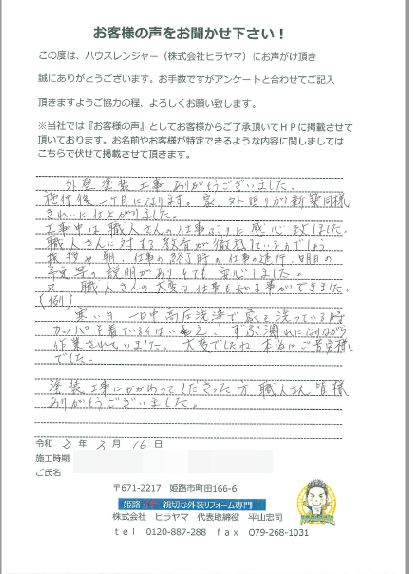 お客様の声をお聞かせ下さい！
この度は、ハウスレンジャー（株式会社ヒラヤマ）にお声がけ頂き
誠にありがとうございます。お手数ですがアンケートと合わせてご記入
頂きますようご協力の程、よろしくお願い致します。
※当社では『お客様の声』としてお客様からご了承頂いてＨＰに掲載させて
頂いております。お名前やお客様が特定できるような内容に関しましては
こちらで伏せて掲載させて頂きます。
外壁塗装工事ありがとうございました。
施行後一ヶ月になります。家、外回りが新築同様
きれいに仕上がりました。
工事中は職人さんの仕事ぶりに感心致しました。
職人さんに対する教育が徹底しているのでしょう
挨拶や朝、仕事の終了時の仕事の進行、明日の
予定等の説明がありとても安心しました。
又、職人さんの大変な仕事も
(例)
寒い日一日中高圧洗浄で家を洗っている時
カッパを着ているとはいえ、ずぶ濡れになりながら
作業されていました。大変でしたね 本当にご苦労様
でした。
塗装工事にかかわってくださった方、職人さん皆様
ありがとうございました。
令和 2 年 3 月 16 日
施工時期
ご氏名
〒671-2217 姫路市町田166-6
姫路 親切な外装リフォーム専門
株式会社 ヒラヤマ 代表取締役 平山忠司
ｔｅｌ 0120-887-288 ｆａｘ 079-268-1031